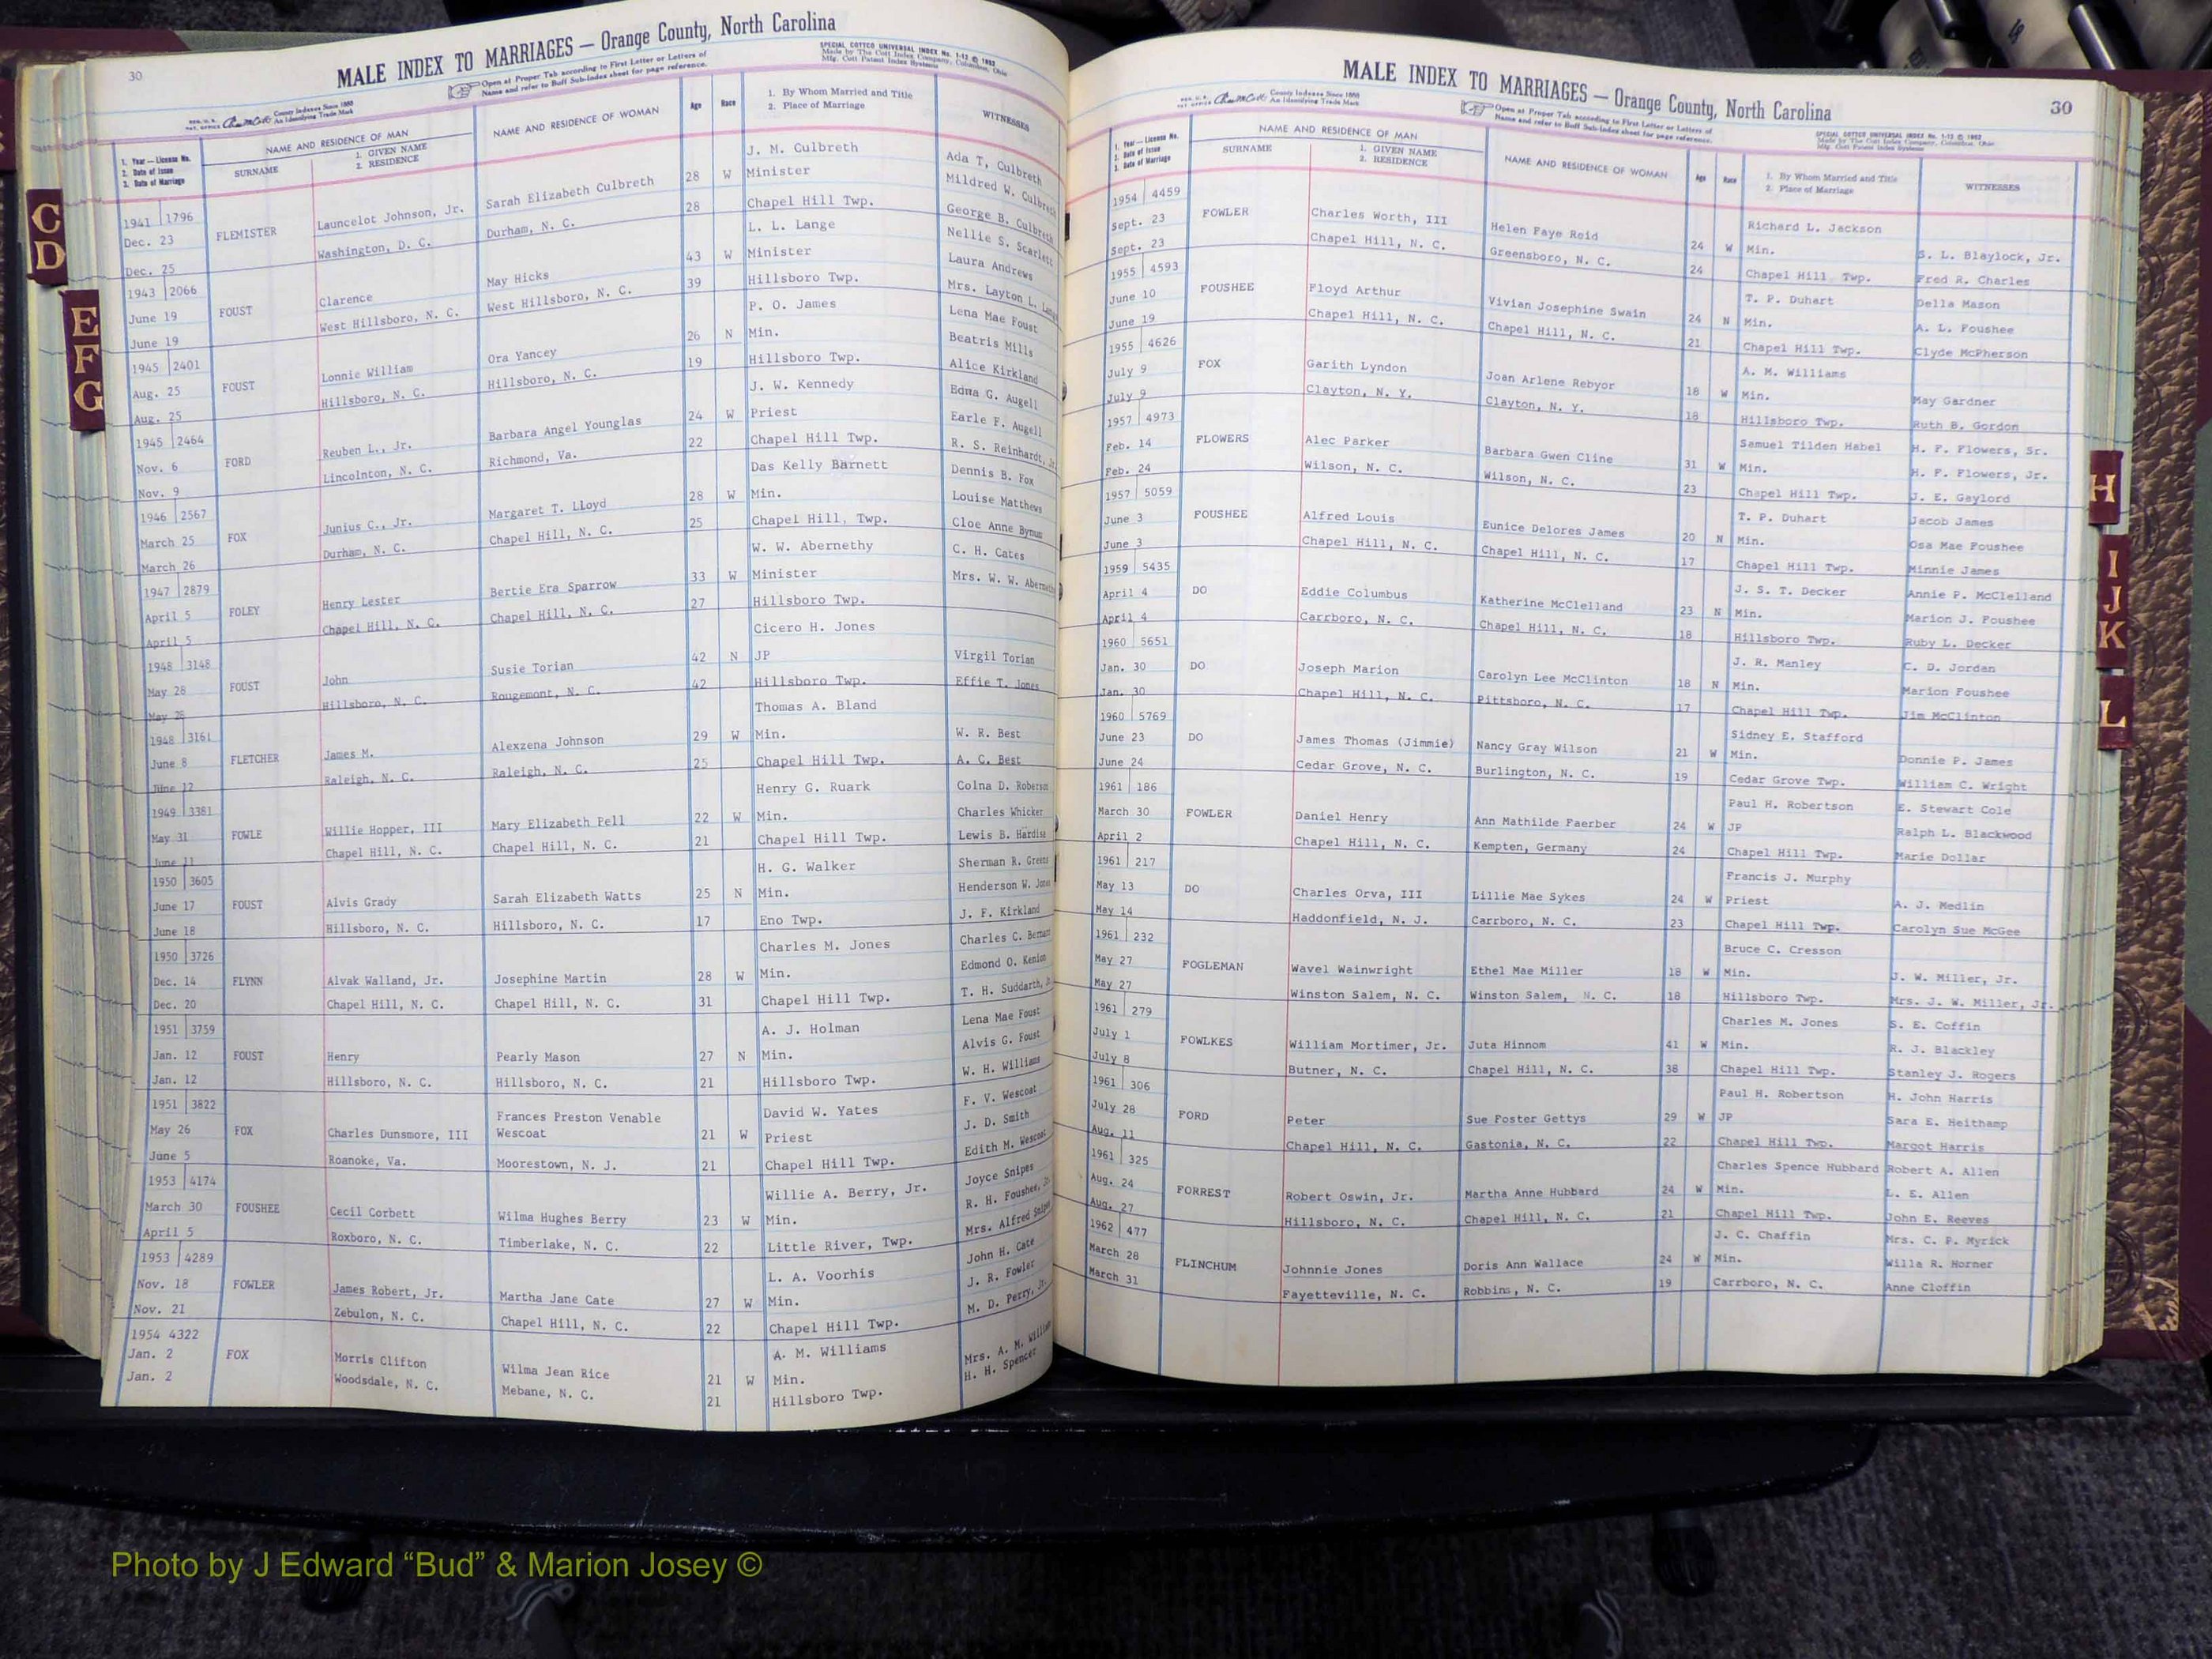 30
MALE INDEX TO MARRIAGES — Orange County, North Carolina
SPECIAL COTTCO UNIVERSAL INDEX No. 1-12 ©
Made by The Cott Index Company, Columbus, Ohio
Mfg. Cott Patent Index Systems
Open at Proper Tab according to First Letter or Letters of
Name and refer to Buff Sub-Index sheet for page reference.
County Indexes Since 1888
An Identifying Trade Mark
1. Year — License No.
2. Date of Issue
3. Date of Marriage
NAME AND RESIDENCE OF MAN
SURNAME
1. GIVEN NAME
2. RESIDENCE
NAME AND RESIDENCE OF WOMAN
Age
Race
1. By Whom Married and Title
2. Place of Marriage
WITNESSES
1941 1796 Dec. 23 Dec. 25
FLEMISTER
Launcelot Johnson, Jr.
Washington, D. C.
Sarah Elizabeth Culbreth
Durham, N. C.
28 W
28
J. M. Culbreth
Minister
Chapel Hill Twp.
Ada T. Culbreth
Mildred W. Culbreth
George B. Culbreth
1943 2066 June 19 June 19
FOUST
Clarence
West Hillsboro, N. C.
May Hicks
West Hillsboro, N. C.
43 W
39
L. L. Lange
Minister
Hillsboro Twp.
Nellie S. Scarlett
Laura Andrews
Mrs. Layton L. Lange
1945 2401 Aug. 25 Aug. 25
FOUST
Lonnie William
Hillsboro, N. C.
Ora Yancey
Hillsboro, N. C.
26 N
19
P. O. James
Min.
Hillsboro Twp.
Lena Mae Foust
Beatris Mills
Alice Kirkland
1945 2464 Nov. 6 Nov. 9
FORD
Reuben L., Jr.
Lincolnton, N. C.
Barbara Angel Younglas
Richmond, Va.
24 W
22
J. W. Kennedy
Priest
Chapel Hill Twp.
Edna G. Augell
Earle F. Augell
R. S. Reinhardt, Jr.
1946 2567 March 25 March 26
FOX
Junius C., Jr.
Durham, N. C.
Margaret T. LLoyd
Chapel Hill, N. C.
28 W
25
Das Kelly Barnett
Min.
Chapel Hill, Twp.
Dennis B. Fox
Louise Matthews
Cloe Anne Bynum
1947 2879 April 5 April 5
FOLEY
Henry Lester
Chapel Hill, N. C.
Bertie Era Sparrow
Chapel Hill, N. C.
33 W
27
W. W. Abernethy
Minister
Hillsboro Twp.
C. H. Cates
Mrs. W. W. Abernethy
1948 3148 May 28 May 28
FOUST
John
Hillsboro, N. C.
Susie Torian
Rougemont, N. C.
42 N
42
Cicero H. Jones
JP
Hillsboro Twp.
Virgil Torian
Effie T. Jones
1948 3161 June 8 June 12
FLETCHER
James M.
Raleigh, N. C.
Alexzena Johnson
Raleigh, N. C.
29 W
25
Thomas A. Bland
Min.
Chapel Hill Twp.
W. R. Best
A. C. Best
1949 3381 May 31 June 11
FOWLE
Willie Hopper, III
Chapel Hill, N. C.
Mary Elizabeth Pell
Chapel Hill, N. C.
22 W
21
Henry G. Ruark
Min.
Chapel Hill Twp.
Colna D. Roberson
Charles Whicker
Lewis B. Hardise
1950 3605 June 17 June 18
FOUST
Alvis Grady
Hillsboro, N. C.
Sarah Elizabeth Watts
Hillsboro, N. C.
25 N
17
H. G. Walker
Min.
Eno Twp.
Sherman R. Greene
Henderson W. Jones
J. F. Kirkland
1950 3726 Dec. 14 Dec. 20
FLYNN
Alvak Walland, Jr.
Chapel Hill, N. C.
Josephine Martin
Chapel Hill, N. C.
28 W
31
Charles M. Jones
Min.
Chapel Hill Twp.
Charles C. Bernard
Edmond O. Kenion
T. H. Suddarth, Jr.
1951 3759 Jan. 12 Jan. 12
FOUST
Henry
Hillsboro, N. C.
Pearly Mason
Hillsboro, N. C.
27 N
21
A. J. Holman
Min.
Hillsboro Twp.
Lena Mae Foust
Alvis G. Foust
W. H. Williams
1951 3822 May 26 June 5
FOX
Charles Dunsmore, III
Roanoke, Va.
Frances Preston Venable
Wescoat
Moorestown, N. J.
21 W
21
David W. Yates
Priest
Chapel Hill Twp.
F. V. Wescoat
J. D. Smith
Edith M. Wescoat
1953 4174 March 30 April 5
FOUSHEE
Cecil Corbett
Roxboro, N. C.
Wilma Hughes Berry
Timberlake, N. C.
23 W
22
Willie A. Berry, Jr.
Min.
Little River, Twp.
Joyce Snipes
R. H. Foushee, Jr.
Mrs. Alfred Snipes
1953 4289 Nov. 18 Nov. 21
FOWLER
James Robert, Jr.
Zebulon, N. C.
Martha Jane Cate
Chapel Hill, N. C.
27 W
22
L. A. Voorhis
Min.
Chapel Hill Twp.
John H. Cate
J. R. Fowler
M. D. Perry, Jr.
1954 4322 Jan. 2 Jan. 2
FOX
Morris Clifton
Woodsdale, N. C.
Wilma Jean Rice
Mebane, N. C.
21 W
21
A. M. Williams
Min.
Hillsboro Twp.
Mrs. A. M. Williams
H. H. Spencer
MALE INDEX TO MARRIAGES — Orange County, North Carolina
30
County Indexes Since 1888
An Identifying Trade Mark
Open at Proper Tab according to First Letter or Letters of
Name and refer to Buff Sub-Index sheet for page reference.
SPECIAL COTTCO UNIVERSAL INDEX NO. 1-12 ©
Made by The Cott Index Company, Columbus, Ohio
Mfg. Cott Patent Index Systems
1. Year — License No.
2. Date of Issue
3. Date of Marriage
NAME AND RESIDENCE OF MAN
SURNAME
1. GIVEN NAME
2. RESIDENCE
NAME AND RESIDENCE OF WOMAN
Age
Race
1. By Whom Married and Title
2. Place of Marriage
WITNESSES
1954 4459 Sept. 23 Sept. 23
FOWLER
Charles Worth, III
Chapel Hill, N. C.
Helen Faye Reid
Greensboro, N. C.
24 W
24
Richard L. Jackson
Min.
Chapel Hill Twp.
S. L. Blaylock, Jr.
Fred R. Charles
1955 4593 June 10 June 19
FOUSHEE
Floyd Arthur
Chapel Hill, N. C.
Vivian Josephine Swain
Chapel Hill, N. C.
24 N
21
T. P. Duhart
Min.
Chapel Hill Twp.
Della Mason
A. L. Foushee
Clyde McPherson
1955 4626 July 9 July 9
FOX
Garith Lyndon
Clayton, N. Y.
Joan Arlene Rebyor
Clayton, N. Y.
18 W
18
A. M. Williams
Min.
Hillsboro Twp.
May Gardner
Ruth B. Gordon
1957 4973 Feb. 14 Feb. 24
FLOWERS
Alec Parker
Wilson, N. C.
Barbara Gwen Cline
Wilson, N. C.
31 W
23
Samuel Tilden Habel
Min.
Chapel Hill Twp.
H. F. Flowers, Sr.
H. F. Flowers, Jr.
J. E. Gaylord
1957 5059 June 3 June 3
FOUSHEE
Alfred Louis
Chapel Hill, N. C.
Eunice Delores James
Chapel Hill, N. C.
20 N
17
T. P. Duhart
Min.
Chapel Hill Twp.
Jacob James
Osa Mae Foushee
Minnie James
1959 5435 April 4 April 4
DO
Eddie Columbus
Carrboro, N. C.
Katherine McClelland
Chapel Hill, N. C.
23 N
18
J. S. T. Decker
Min.
Hillsboro Twp.
Annie P. McClelland
Marion J. Foushee
Ruby L. Decker
1960 5651 Jan. 30 Jan. 30
DO
Joseph Marion
Chapel Hill, N. C.
Carolyn Lee McClinton
Pittsboro, N. C.
18 N
17
J. R. Manley
Min.
Chapel Hill Twp.
C. D. Jordan
Marion Foushee
Jim McClinton
1960 5769 June 23 June 24
DO
James Thomas (Jimmie)
Cedar Grove, N. C.
Nancy Gray Wilson
Burlington, N. C.
21 W
19
Sidney E. Stafford
Min.
Cedar Grove Twp.
Donnie P. James
William C. Wright
1961 186 March 30 April 2
FOWLER
Daniel Henry
Chapel Hill, N. C.
Ann Mathilde Faerber
Kempten, Germany
24 W
24
Paul H. Robertson
JP
Chapel Hill Twp.
E. Stewart Cole
Ralph L. Blackwood
Marie Dollar
1961 217 May 13 May 14
DO
Charles Orva, III
Haddonfield, N. J.
Lillie Mae Sykes
Carrboro, N. C.
24 W
23
Francis J. Murphy
Priest
Chapel Hill Twp.
A. J. Medlin
Carolyn Sue McGee
1961 232 May 27 May 27
FOGLEMAN
Wavel Wainwright
Winston Salem, N. C.
Ethel Mae Miller
Winston Salem, N. C.
18 W
18
Bruce C. Cresson
Min.
Hillsboro Twp.
J. W. Miller, Jr.
Mrs. J. W. Miller, Jr.
1961 279 July 1 July 8
FOWLKES
William Mortimer, Jr.
Butner, N. C.
Juta Hinnom
Chapel Hill, N. C.
41 W
38
Charles M. Jones
Min.
Chapel Hill Twp.
S. E. Coffin
R. J. Blackley
Stanley J. Rogers
1961 306 July 28 Aug. 11
FORD
Peter
Chapel Hill, N. C.
Sue Foster Gettys
Gastonia, N. C.
29 W
22
Paul H. Robertson
JP
Chapel Hill Twp.
H. John Harris
Sara E. Heithamp
Margot Harris
1961 325 Aug. 24 Aug. 27
FORREST
Robert Oswin, Jr.
Hillsboro, N. C.
Martha Anne Hubbard
Chapel Hill, N. C.
24 W
21
Charles Spence Hubbard
Min.
Chapel Hill Twp.
Robert A. Allen
L. E. Allen
John E. Reeves
1962 477 March 28 March 31
FLINCHUM
Johnnie Jones
Fayetteville, N. C.
Doris Ann Wallace
Robbins, N. C.
24 W
19
J. C. Chaffin
Min.
Carrboro, N. C.
Mrs. C. P. Myrick
Willa R. Horner
Anne Cloffin
C
D
E
F
G
H
I
J
K
L
Photo by J Edward “Bud” & Marion Josey ©